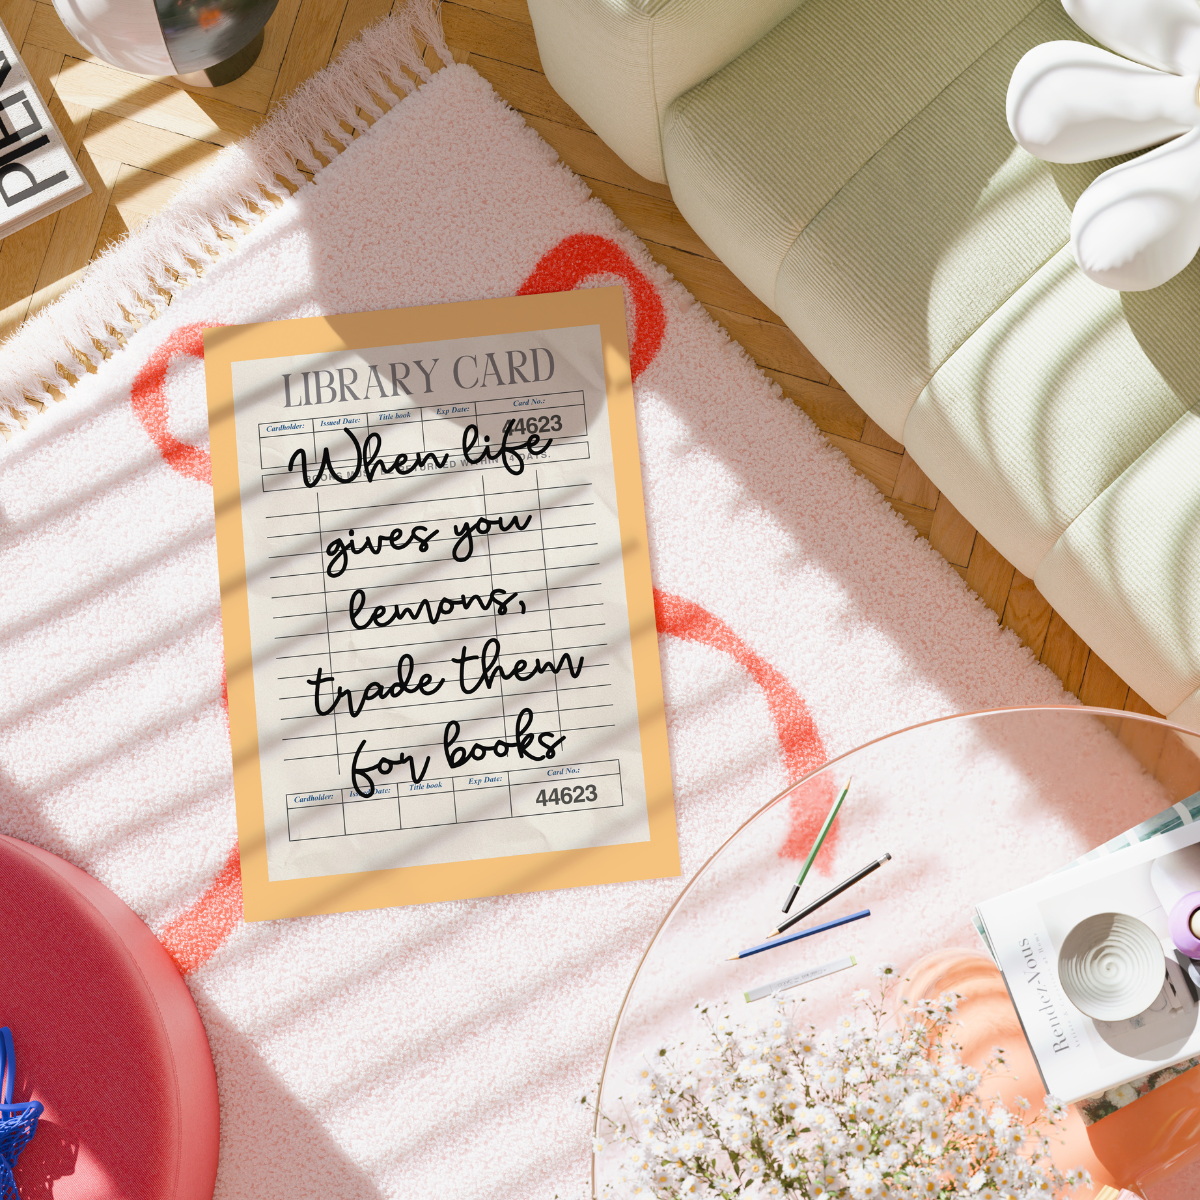 LIBRARY CARD
Cardholder: Issued Date: Title book Exp Date: Card No.:
44623
When life
gives you
lemons,
trade them
for books
Cardholder: Issued Date: Title book Exp Date: Card No.:
44623
Rendez-Vous